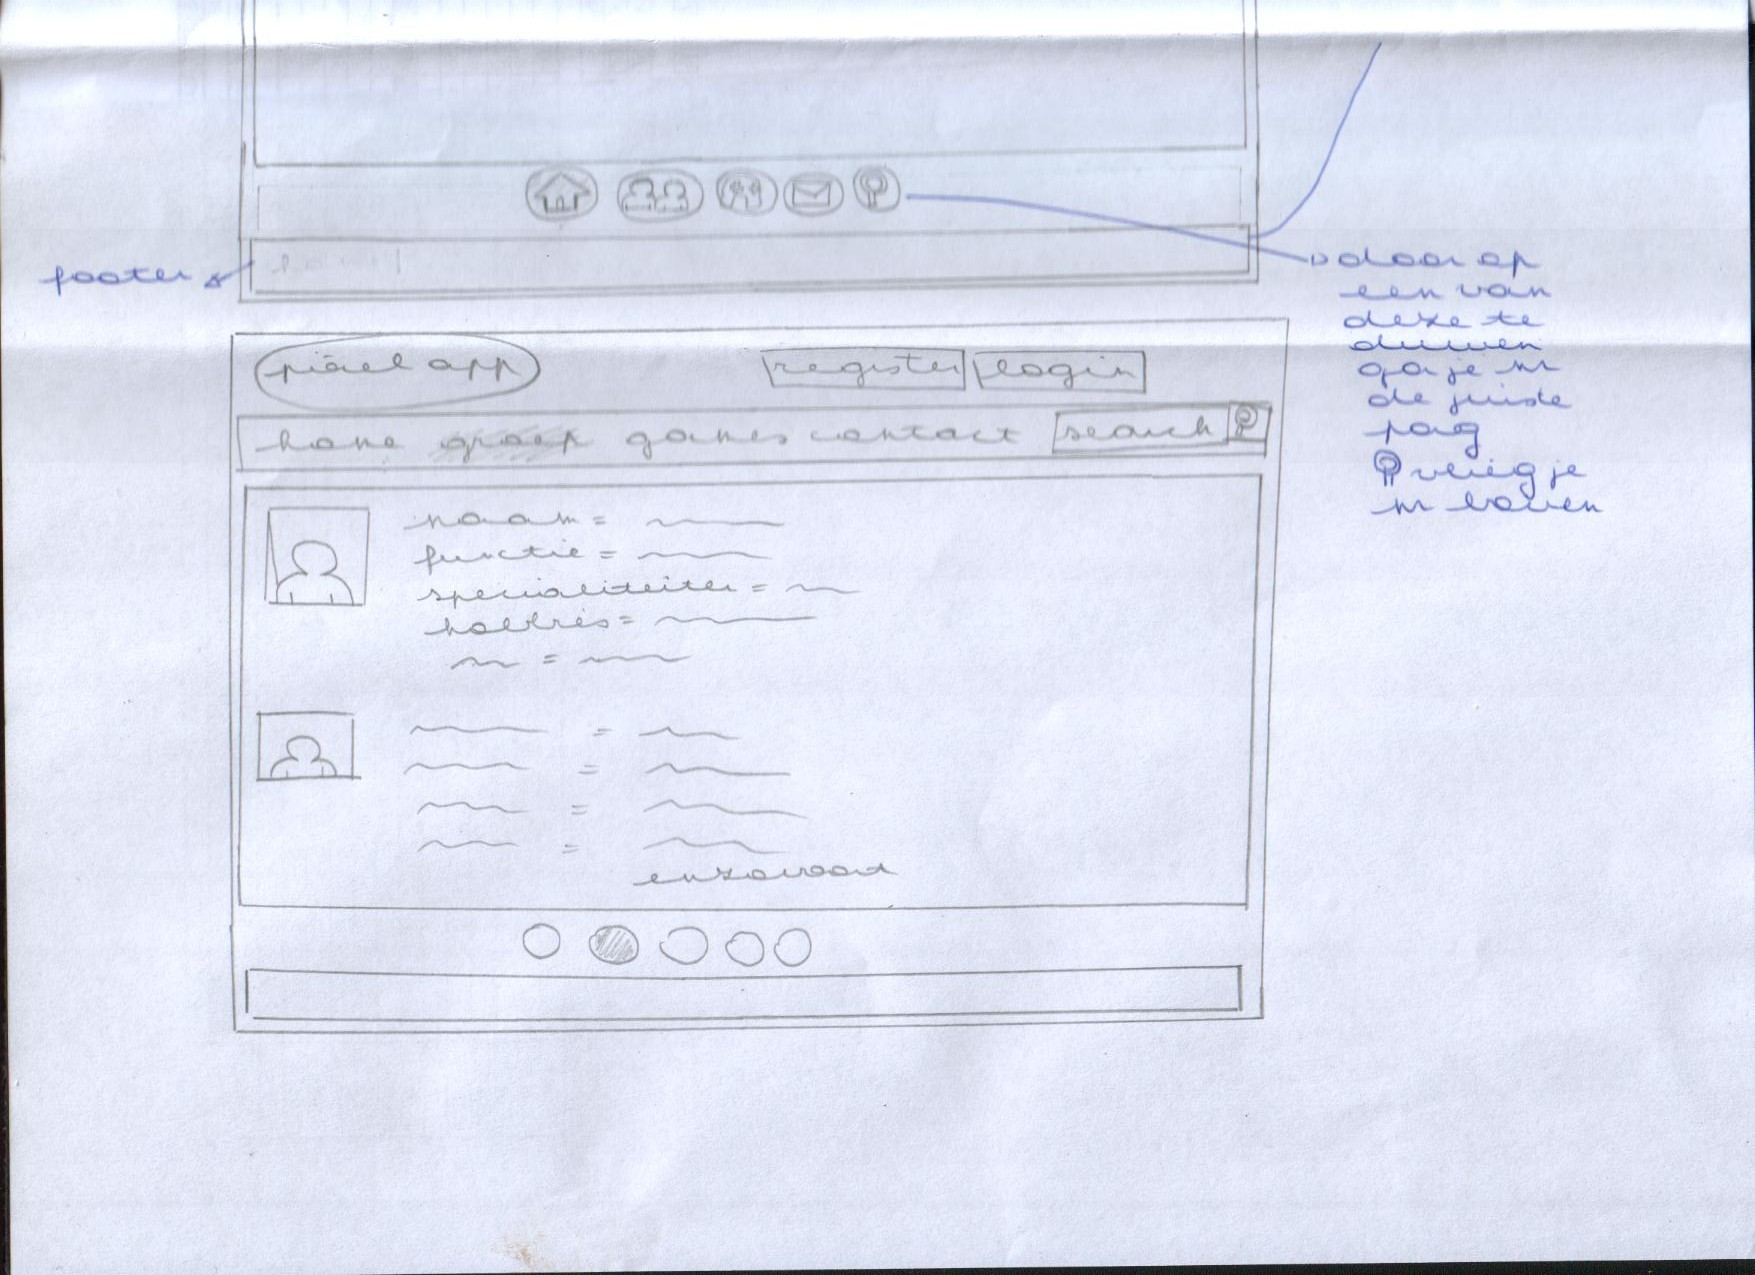 footer
door op
een van
deze te
duwen
ga je nr
de juiste
pag
vlieg je
nr boven
pixel app
register login
home groep games contact search
naam =
functie =
specialiteiten =
hobbies =
=
=
=
=
=
enzovoort